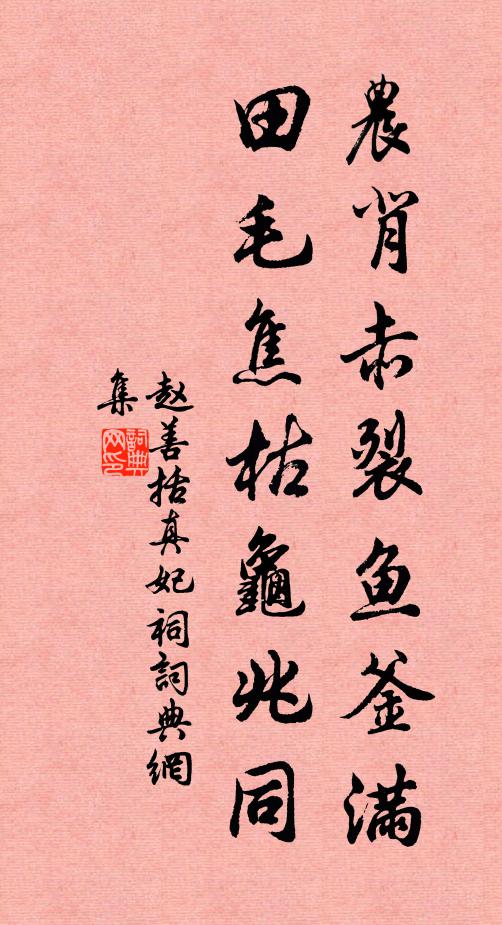 農背赤裂鱼釜满
田毛焦枯龜兆同
赵善括真妃祠詞典網
集
詞典網印